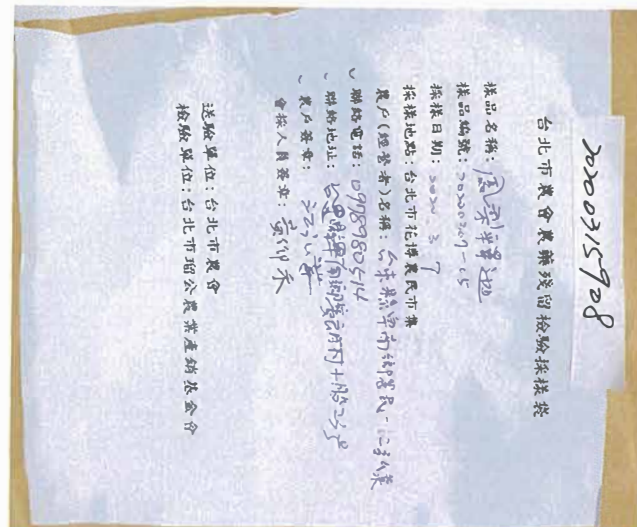 20200315928
台北市農會農藥殘留檢驗採樣袋
樣品名稱：鳳梨釋迦
樣品編號：20200307-15
採樣日期：2020.3.7
採樣地點：台北市花博農民市集
農戶(經營者)名稱：台東縣卑南鄉農民-江
聯絡電話：0978980514
聯絡地址：台東縣卑南鄉賓朗村十股2號
農戶簽章：江
會採人員簽章：
送驗單位：台北市農會
檢驗單位：台北市瑠公農業產銷基金會